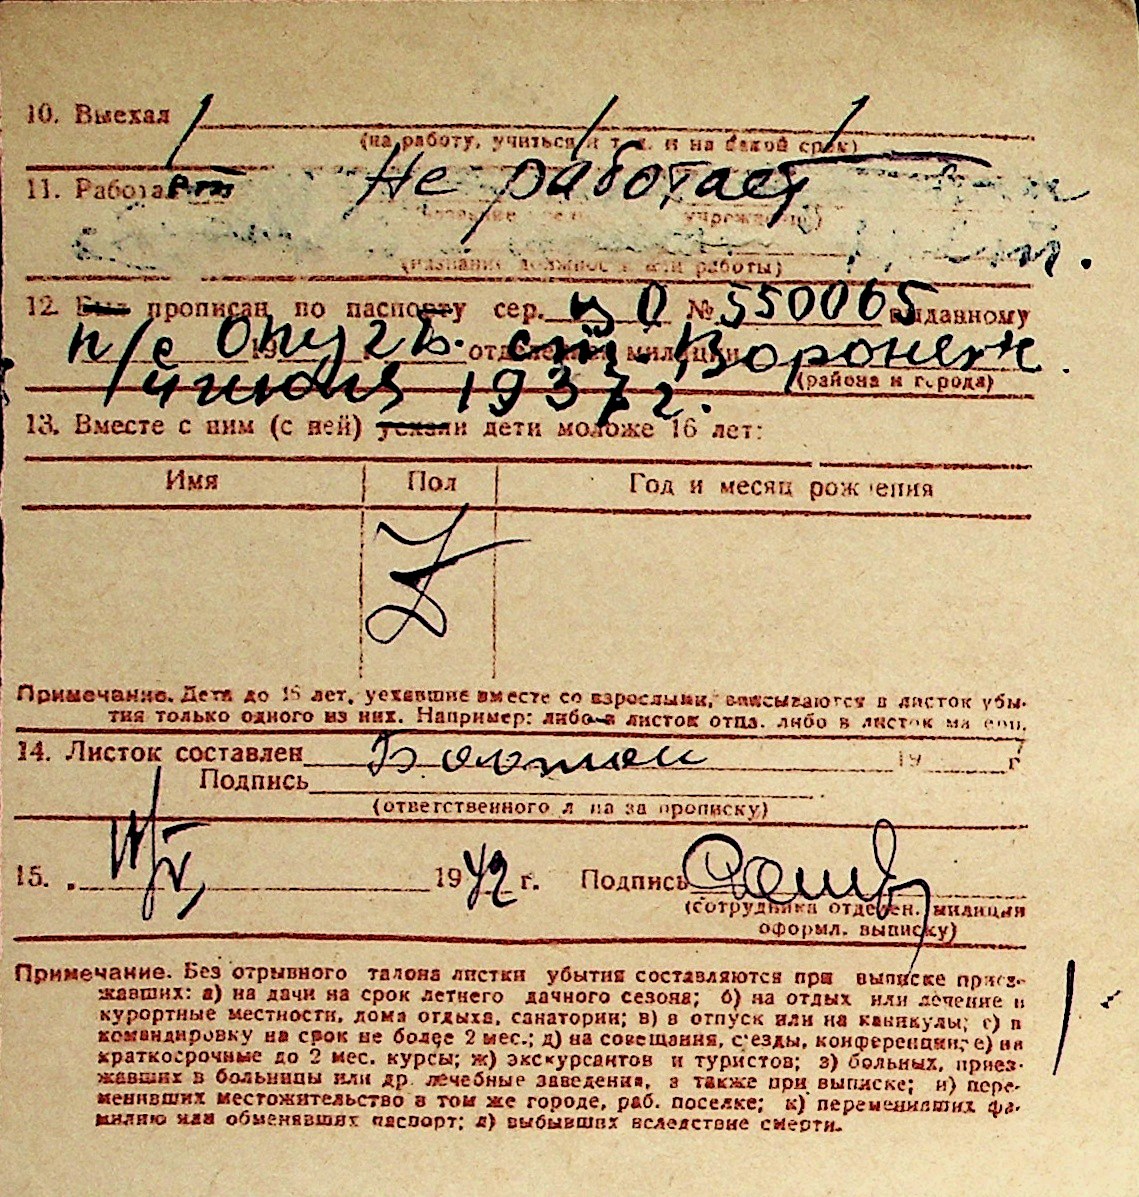 10. Выехал
(на работу, учиться и т. п. и на какой срок)
11. Работает Не работает
учреждения)
(название должности или работы)
12. Был прописан по паспорту сер. № 550065 выданному
п/с 19 г. отделением милиции ст. Воронеж.
(района и города)
4 июля 1937 г.
13. Вместе с ним (с ней) уехали дети моложе 16 лет:
Имя Пол Год и месяц рождения
Z
Примечание. Дети до 16 лет, уехавшие вместе со взрослыми, вписываются в листок убы-
тия только одного из них. Например: либо в листок отца, либо в листок матери.
14. Листок составлен 19 г
Подпись
(ответственного лица за прописку)
15. 1942 г. Подпись
(сотрудника отделен. милиции
оформл. выписку)
Примечание. Без отрывного талона листки убытия составляются при выписке приез-
жавших: а) на дачи на срок летнего дачного сезона; б) на отдых или лечение в
курортные местности, дома отдыха, санатории; в) в отпуск или на каникулы; г) в
командировку на срок не более 2 мес.; д) на совещания, съезды, конференции; е) на
краткосрочные до 2 мес. курсы; ж) экскурсантов и туристов; з) больных, приез-
жавших в больницы или др. лечебные заведения, а также при выписке; и) пере-
менивших местожительство в том же городе, раб. поселке; к) переменивших фа-
милию или обменявших паспорт; л) выбывших вследствие смерти.